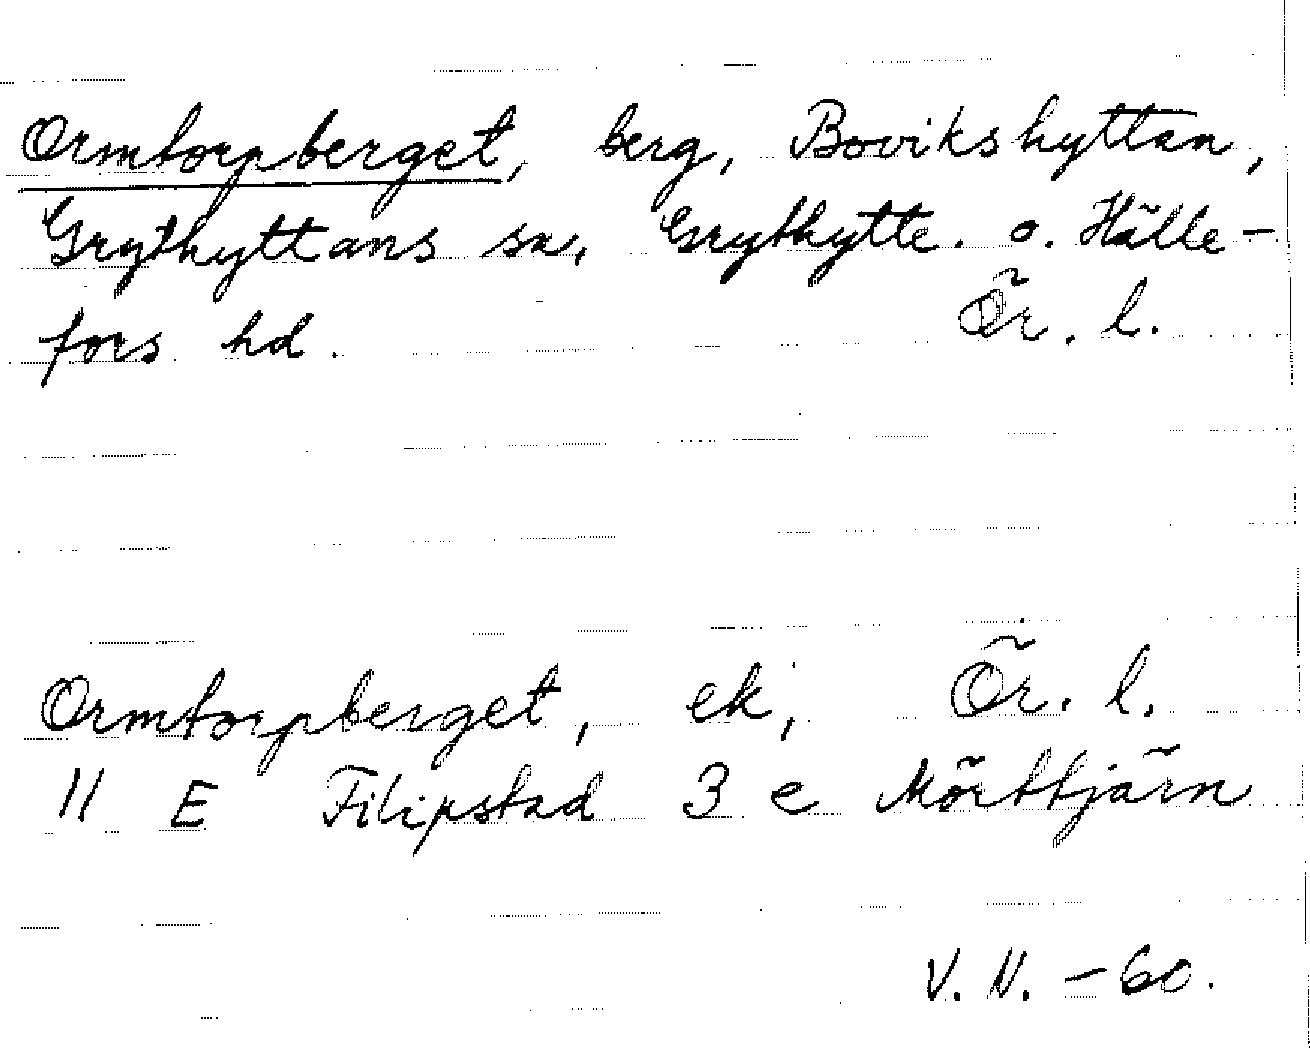 Ormtorpberget, berg, Bovikshyttan,
Grythyttans sn, Grythytte. o. Hälle-
fors hd. Ör. l.
Ormtorpberget, ek, Ör. l.
11 E Filipstad 3 e Mörttjärn
V. N. -60.